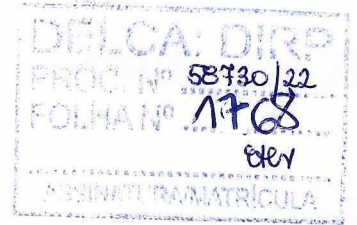 DELCA: DIRP
PROC. Nº 58730/22
FOLHA Nº 1768
ASSINATURA/MATRÍCULA